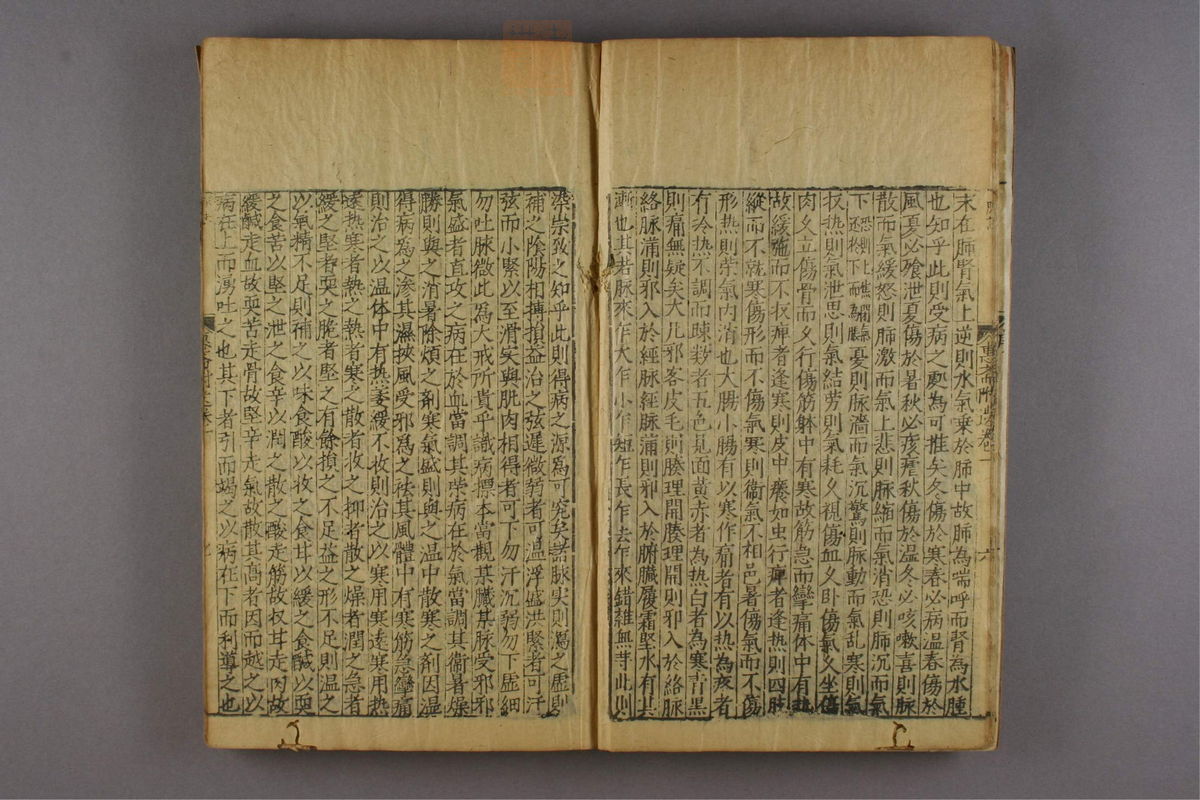 末在肺腎氣上逆則水氣乗於肺中故肺為喘呼而腎為水腫
也知乎此則受病之処為可推矣冬傷於寒春必病温春傷於
風夏必飱泄夏傷於暑秋必痎瘧秋傷於温冬必咳嗽喜則脉
散而氣緩怒則肺激而氣上悲則脉縮而氣消恐則肺沉而氣
下恐則上焦閉氣還於下而為脹憂則脉濇而氣沉驚則脉動而氣乱寒則氣
収熱則氣泄思則氣結劳則氣耗乆視傷血乆卧傷氣乆坐傷
肉乆立傷骨而乆行傷筋躰中有寒故筋急而攣痛体中有熱
故緩弛而不収痺者逢寒則皮中癢如虫行痺者逢熱則四肢
縱而不就寒傷形而不傷氣寒則衞氣不相邑暑傷氣而不傷
形熱則荣氣内消也大腸小腸有以寒作痛者有以熱為疼者
有冷熱不調而疎殺者五色見面黄赤者為熱白者為寒青黒
則痛無疑矣大凡邪客皮毛則腠理開腠理開則邪入於絡脉
絡脉蒲則邪入於經脉經脉蒲則邪入於腑臓履霜堅水有其
漸也其若脉來乍大乍小乍短乍長乍去乍來錯雜無寺此則
染崇致之知乎此則得病之源為可究矣諸脉实則瀉之虛則
補之陰陽相摶損益治之弦遅微弱者可温浮盛洪緊者可汗
弦而小緊以至滑实與肌肉相得者可下勿汗沉弱勿下虛細
勿吐脉微此為大戒所貴乎識病摽本當觀其臓其脉受邪邪
氣盛者直攻之病在於血當調其荣病在於氣當調其衞暑燥
勝則與之消暑除煩之剤寒氣盛則與之温中散寒之剤因温
得病為之滲其濕挾風受邪為之祛其風體中有寒筋急攣痛
則治之以温体中有热萎緩不收則治之以寒用寒逺寒用热
逺热寒者熱之熱者寒之散者收之抑者散之燥者潤之急者
緩之堅者耎之脆者堅之有餘損之不足益之形不足則温之
以氣精不足則補之以味食酸以收之食甘以緩之食鹹以耎
之食苦以堅之泄之食辛以潤之散之酸走筋故収甘走肉故
緩鹹走血故耎苦走骨故堅辛走氣故散其高者因而越之以
病在上而湧吐之也其下者引而竭之以病在下而利導之也